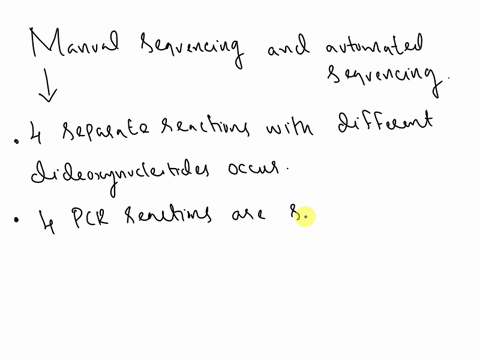 Manual sequencing and automated
sequencing.
↓
• 4 separate reactions with different
dideoxynucleitides occur.
• 4 PCR reactions are s.